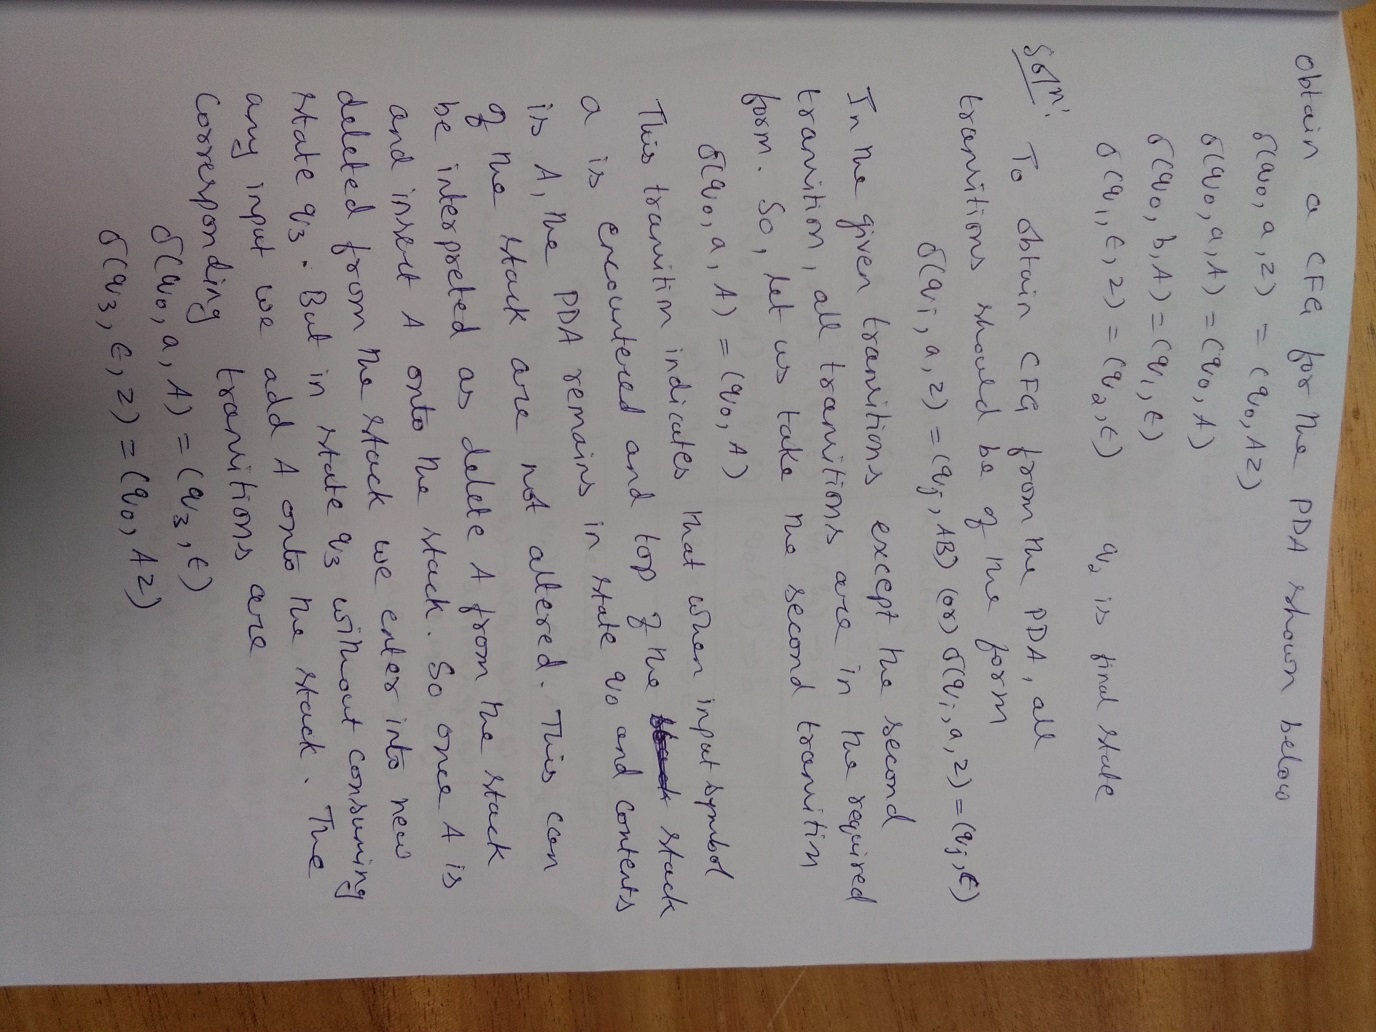 Obtain a CFG for the PDA shown below
δ(q0, a, Z) = (q0, AZ)
δ(q0, a, A) = (q0, A)
δ(q0, b, A) = (q1, ε)
δ(q1, ε, Z) = (q2, ε) q2 is final state
Soln: To obtain CFG from the PDA, all
transitions should be of the form
δ(qi, a, Z) = (qj, AB) (or) δ(qi, a, Z) = (qj, ε)
In the given transitions except the second
transition, all transitions are in the required
form. So, let us take the second transition
δ(q0, a, A) = (q0, A)
This transition indicates that when input symbol
a is encountered and top of the stack
is A, the PDA remains in state q0 and contents
of the stack are not altered. This can
be interpreted as delete A from the stack
and insert A onto the stack. So once A is
deleted from the stack we enter into new
state q3. But in state q3 without consuming
any input we add A onto the stack. The
corresponding transitions are
δ(q0, a, A) = (q3, ε)
δ(q3, ε, Z) = (q0, AZ)